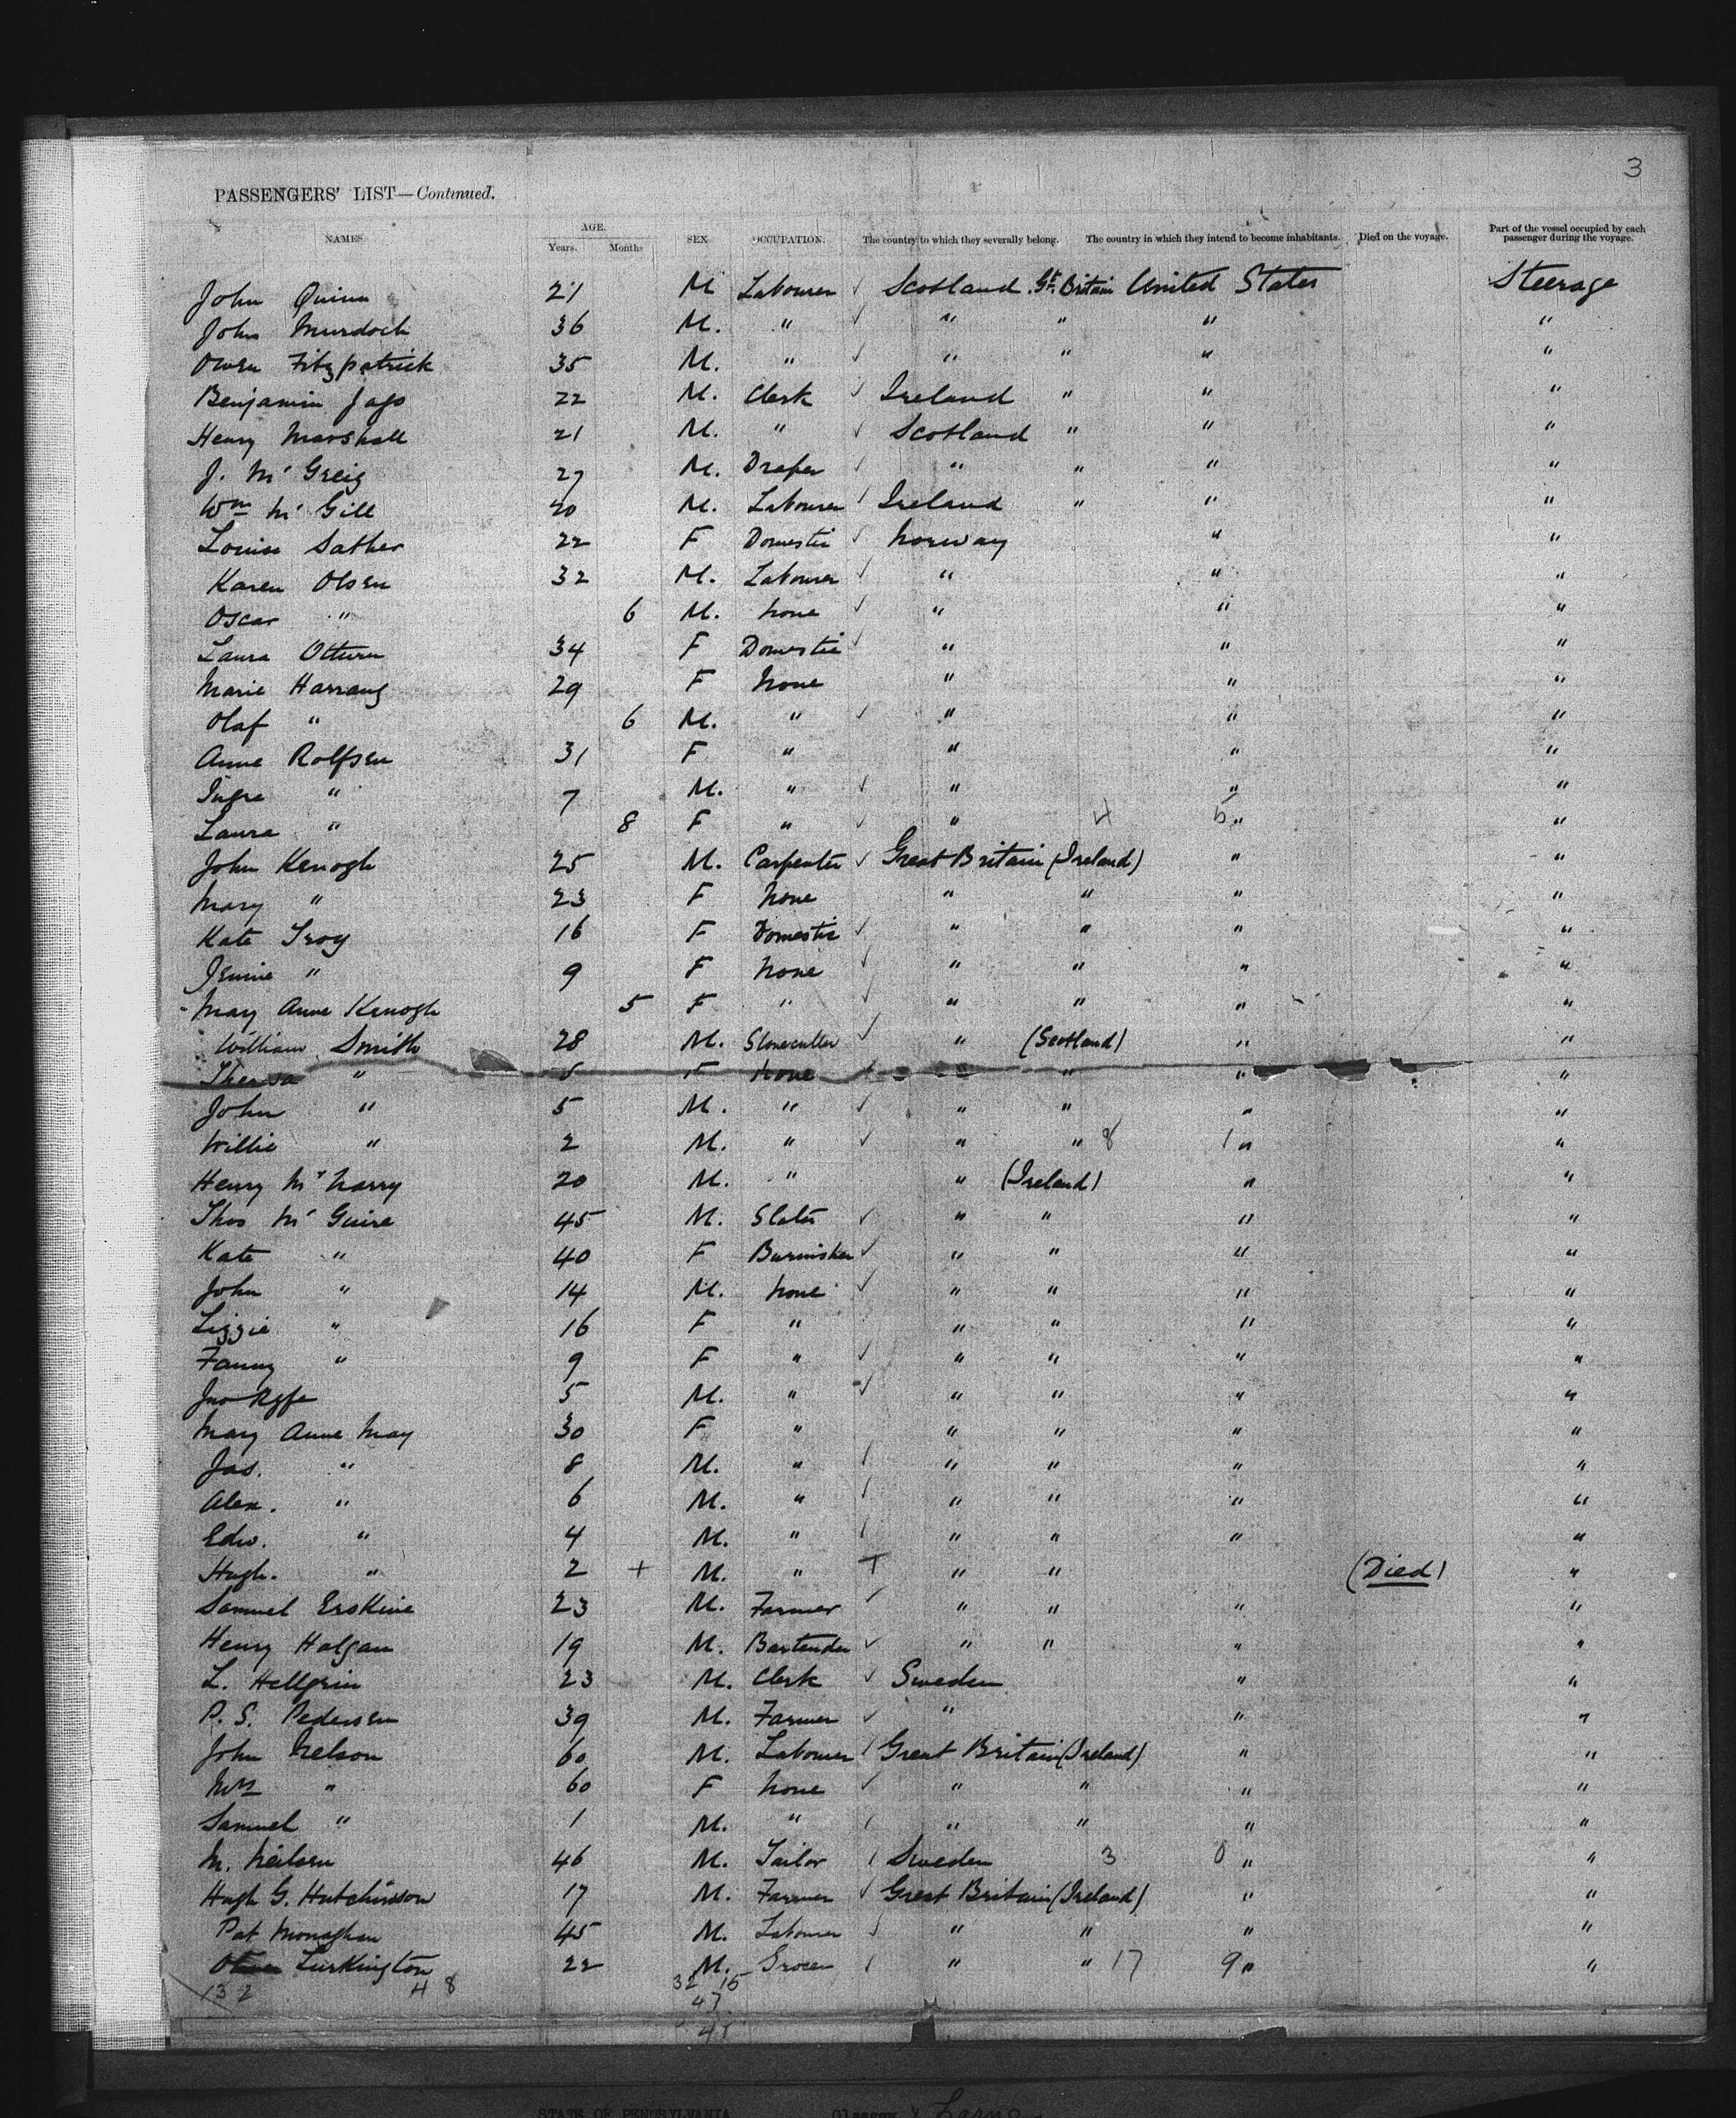 3
PASSENGERS' LIST—Continued.
NAMES. AGE. Years. Months SEX OCCUPATION. The country to which they severally belong. The country in which they intend to become inhabitants. Died on the voyage. Part of the vessel occupied by each passenger during the voyage.
John Quinn 21 M Labourer ✓ Scotland Gt. Britain United States Steerage
John Murdoch 36 M. " ✓ " " " "
Owen Fitzpatrick 35 M. " ✓ " " " "
Benjamin Jago 22 M. Clerk ✓ Ireland " " "
Henry Marshall 21 M. " ✓ Scotland " " "
J. Mc Greig 27 M. Draper ✓ " " " "
Wm Mc Gill 20 M. Labourer ✓ Ireland " " "
Louise Sather 22 F Domestic ✓ Norway " "
Karen Olsen 32 M. Labourer ✓ " " "
Oscar " 6 M. None ✓ " " "
Laura 34 F Domestic ✓ " " "
Marie Harrang 29 F None " " "
Olaf " 6 M. " ✓ " " "
Anne Rolfsen 31 F " " " "
" 7 M. " ✓ " " "
Laura " 8 F " ✓ " 4 5 " "
John Kenogh 25 M. Carpenter ✓ Great Britain (Ireland) " "
Mary " 23 F None " " " "
Kate Troy 16 F Domestic ✓ " " " "
Jennie " 9 F None ✓ " " " "
Mary Anne Kenogh 5 F " ✓ " " " "
William Smith 28 M. Stonecutter ✓ " (Scotland) " "
Theresa " F None " " "
John " 5 M. " ✓ " " " "
Willie " 2 M. " ✓ " " 8 1 " "
Henry Mc Narry 20 M. " " (Ireland) " "
Thos Mc Guire 45 M. Slater ✓ " " " "
Kate " 40 F Burnisher ✓ " " " "
John " 14 M. None ✓ " " " "
Lizzie " 16 F " " " " "
Fanny " 9 F " ✓ " " " "
Jno 5 M. " ✓ " " " "
Mary Anne May 30 F " " " " "
Jas. " 8 M. " / " " " "
Alex. " 6 M. " / " " " "
Edw. " 4 M. " / " " " "
Hugh. " 2 + M. " + " " (Died) "
Samuel Erskine 23 M. Farmer ✓ " " " "
Henry Halgan 19 M. Bartender ✓ " " " "
L. Hellgrin 23 M. Clerk ✓ Sweden " "
P. S. Pedersen 39 M. Farmer ✓ " " "
John Nelson 60 M. Labourer / Great Britain (Ireland) " "
Mrs " 60 F None ✓ " " " "
Samuel " 1 M. " / " " " "
M. Neilsen 46 M. Tailor / Sweden 3 0 " "
Hugh G. Hutchinson 17 M. Farmer ✓ Great Britain (Ireland) " "
Pat Monaghan 45 M. Labourer ✓ " " " "
Lurkington 22 M. Grocer / " " 17 9 " "
132 48 32 15
47
STATE OF PENNSYLVANIA Glasgow & Larne